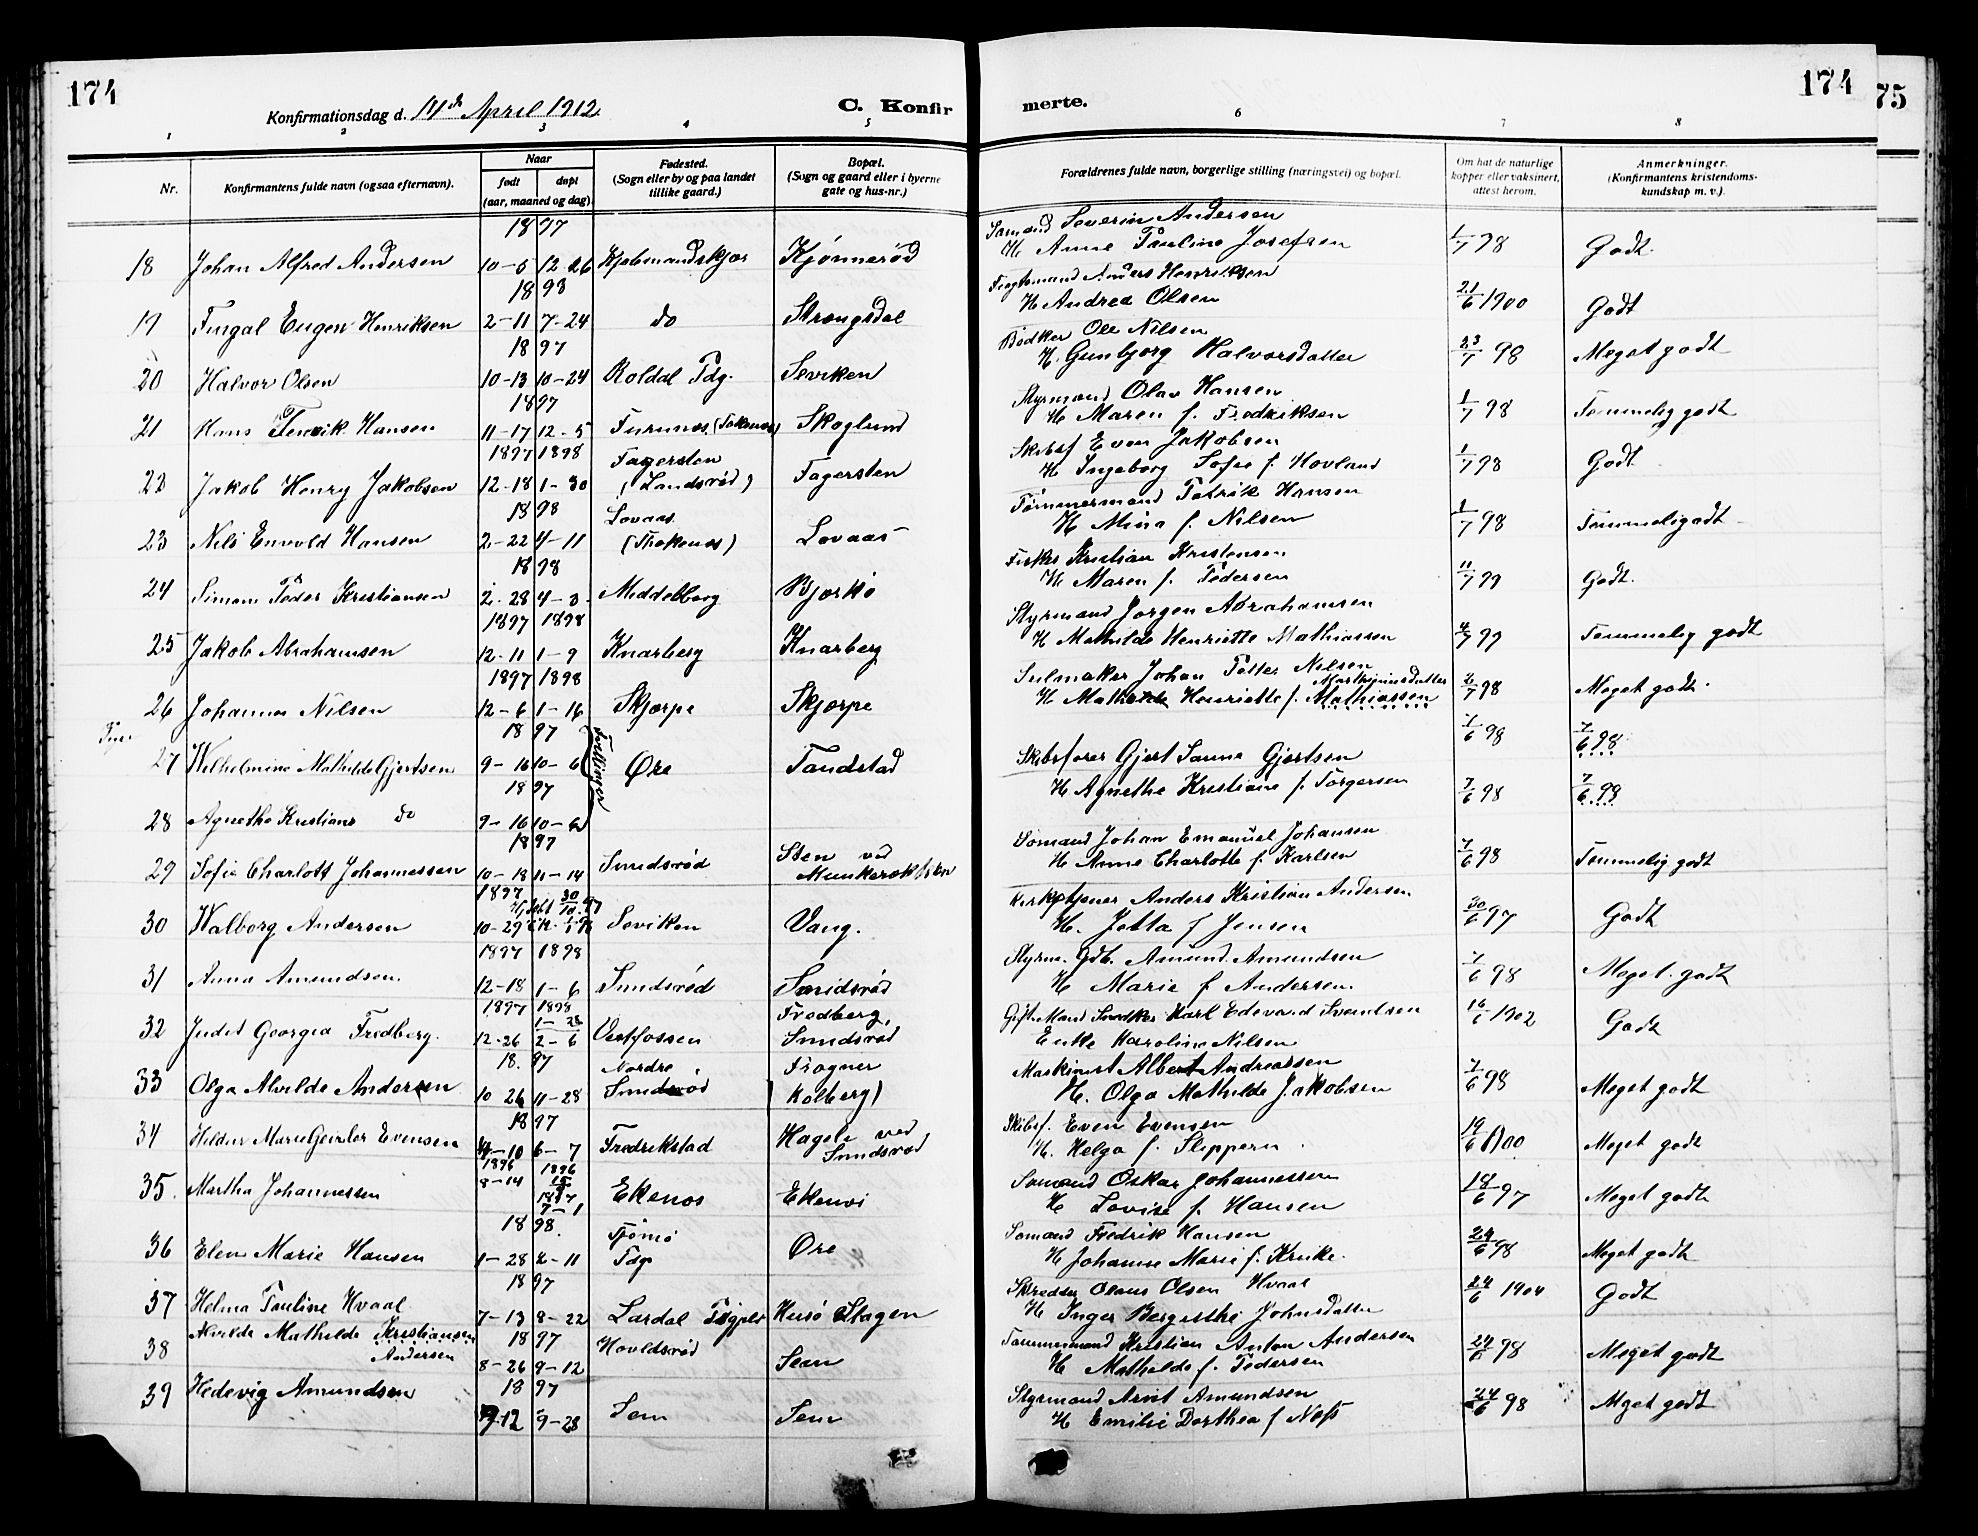 174
174
75
Konfirmationsdag d. 14de April 1912
C. Konfir
merte.
1 2 3 4 5 6 7 8
Nr.
Konfirmantens fulde navn (ogsaa efternavn).
Naar
født
døpt
(aar, maaned og dag)
Fødested.
(Sogn eller by og paa landet
tillike gaard.)
Bopæl.
(Sogn og gaard eller i byerne
gate og hus-nr.)
Forældrenes fulde navn, borgerlige stilling (næringsvei) og bopæl.
Om hat de naturlige
kopper eller vaksinert,
attest herom.
Anmerkninger.
(Konfirmantens kristendoms-
kundskap m. v.)
1897
Sømand Severin Andersen
18 Johan Alfred Andersen 10-5 12-26 Kjøbmandskjær Kjønnerød H. Anne Pauline Josefsen 1/7 98 Godt.
1898
Anders Henriksen
19 Fingal Eugen Henriksen 2-11 7-24 do Strengsdal H Andrea Olsen 21/6 1900 Godt
1897
Bødker Ole Nilsen
20 Halvor Olsen 10-13 10-24 Roldal Tdg. Seviken H. Gunbjørg Halvorsdatter 23/7 98 Meget godt
1897
Styrmand Olav Hansen
21 Hans Fredrik Hansen 11-17 12-5 Furunes Skoglund H Maren f. Fredriksen 1/7 98 Temmelig godt
1897 1898
Skibsf Even Jakobsen
22 Jakob Henry Jakobsen 12-18 1-30 Fagersten (Landsrød) Fagersten H Ingeborg Sofie f. Hovland 1/7 98 Godt
1898
Tømmermand Patrik Hansen
23 Nils Envold Hansen 2-22 4-11 Lovaas Lovaas H Mina f. Nilsen 1/7 98 Temmeligodt
1898
Fisker Kristian Kristensen
24 Simon Peder Kristiansen 2-28 4-3 Middelborg Bjerkø H Maren f. Pedersen 11/7 99 Godt.
1897 1898
Styrmand Jørgen Abrahamsen
25 Jakob Abrahamsen 12-11 1-9 Knarberg Knarberg H Mathilde Henriette Mathiassen 4/7 99 Temmelig godt
1897 1898
Seilmaker Johan Petter Nilsen
26 Johannes Nilsen 12-6 1-16 Skjærpe Skjærpe H Mathilde Henriette f. Mathiassen 2/7 98 Meget godt.
1897
27 Wilhelmine Mathilde Gjertsen 9-16 10-6 Tvillinger Øre Tandstad Skibsfører Gjert Sanne Gjertsen 7/6 98 7/6 98
1897
H Agnethe Kristiane f. Torgersen
28 Agnethe Kristiane do 9-16 10-6 7/6 98 7/6 98
1897
Sømand Johan Emanuel Johansen
29 Sofie Charlott Johannessen 10-18 11-14 Smidsrød Sten ved Munkerekkken H Anne Charlotte f. Karlsen 7/6 98 Temmelig godt
1897
Kirketjener Anders Kristian Andersen
30 Walborg Andersen 10-29 Seviken Vang. H. Jetta f Jensen 30/6 97 Godt
1897 1898
Styrm. Gdb. Amund Amundsen
31 Anna Amundsen. 12-18 1-6 Smidsrød Smidsrød H Marie f Andersen. 7/6 98 Meget godt
1897 1898
Gift Mand Snedker Karl Edevard Svendsen
32 Judit Georgea Fredberg. 12-26 1-28 2-6 Vestfossen Fredberg, Smidsrød Enke Karoline Nilsen 16/6 1902 Godt
1897
Maskinist Albert Andreassen
33 Olga Alvilde Andersen 10 26 11-28 Nordre Smidsrød Frogner (Kolberg) H. Olga Mathilde Jakobsen 7/6 98 Meget godt
1897
Skibsf. Even Evensen
34 Hildur Marie Evensen 10 6-7 Fredrikstad Hagele ved Smidsrød H. Helga f. Slippern 19/6 1900 Meget godt
1896 1896
Sømand Oskar Johannessen
35. Martha Johannessen 8-14 1897 7-1 Ekenes Ekenes H Lovise f. Hansen 18/6 97 Meget godt
1898.
Sømand Fredrik Hansen
36 Elen Marie Hansen 1-28 2-11 Tjømø Tdg Øre H Johanne Marie f. Knike. 24/6 98 Meget godt
1897
Skrædder Olaus Olsen Hvaal
37 Helma Pauline Hvaal 7-13 8-22 Lardal Husø Stagen H Inger Bergitthe Johnsdatter 24/6 1904 Godt
1897
Tømmermand Kristian Anton Andersen
38 Alvilde Mathilde Kristiansen Andersen 8-26 9-12 Hovldsrød Sem H Mathilde f. Pedersen 24/6 98 Meget godt
1897
Styrmand Arnt Amundsen
39 Hedevig Amundsen 9-12 9-28 Sem Sem H Emilie Dorthea f Næss 24/6 98 Meget godt